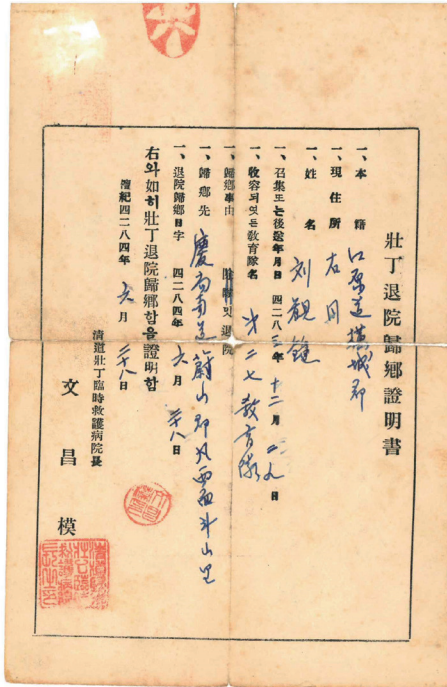 壯丁退院歸鄉證明書
一、本籍 江原道橫城郡
一、現住所 右同
一、姓名 刘観鍾
一、召集또는後送年月日 四二八三年十二月二九日
一、收容되엿든敎育隊名 第二七敎育隊
一、歸鄉事由 및退院
一、歸鄉先 慶尙南道蔚山郡 西面斗山里
一、退院歸鄉日字 四二八四年六月二八日
右와如히壯丁退院歸鄉함을證明함
檀紀四二八四年六月二八日
淸道壯丁臨時救護病院長
文昌模